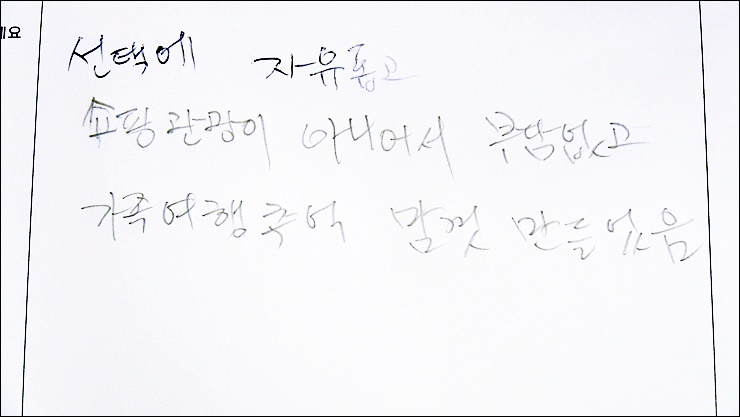 세요
선택에 자유롭고
쇼핑관광이 아니어서 부담없고
가족여행추억 맘껏 만들었음